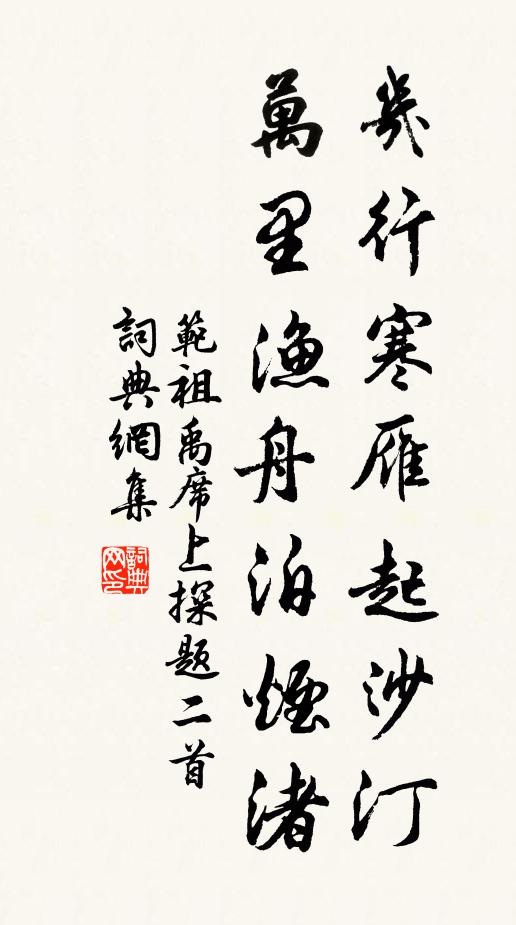 幾行寒雁起沙汀
萬里漁舟泊煙渚
範祖禹席上探題二首
詞典網集
詞典网印